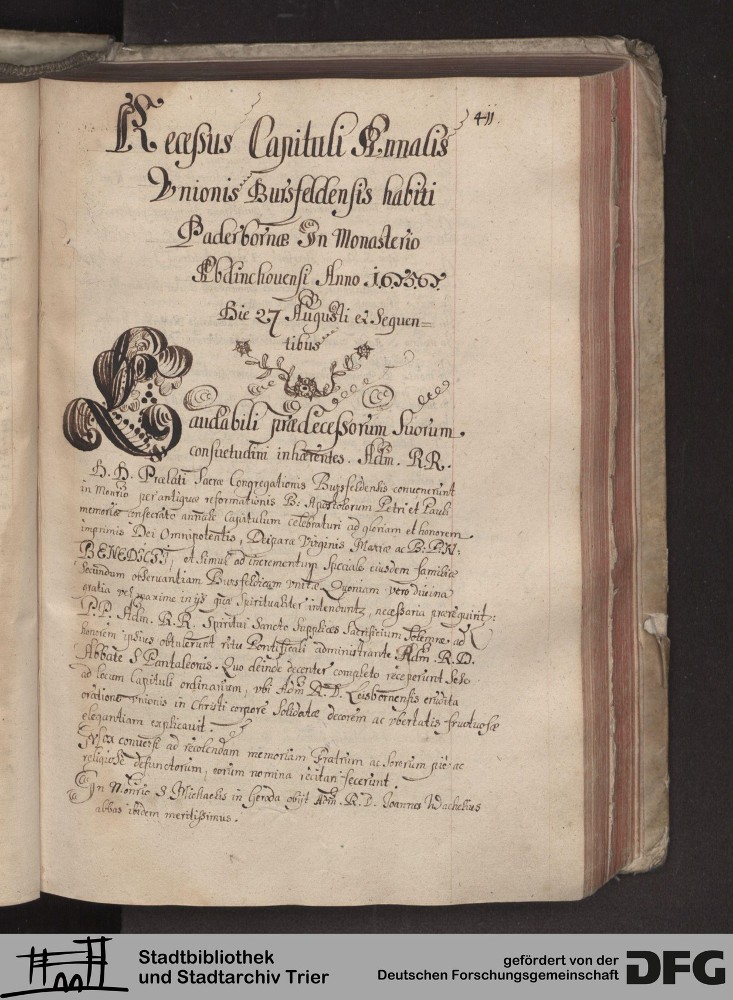 411
Recessus Capituli Annalis
Unionis Bursfeldensis habiti
Paderbornæ In Monasterio
Abdinchovensi Anno
Die 27 Augusti et Sequen=
tibus
Laudabili prædecessorum Suorum
consuetudini inhærentes. Adm. RR.
D. D. Prælati Sacræ Congregationis Bursfeldensis convenerunt
in Monrio perantiquæ reformationis B: Apostolorum Petri et Pauli
memoriæ consecrato annale Capitulum celebraturi ad gloriam et honorem
imprimis Dei Omnipotentis, Deiparæ Virginis Mariæ ac B: P. N:
BENEDICTI, et Simul ad incrementum Speciale eiusdem familiæ
Secundum observantiam Bursfeldicam unitæ. Quoniam vero divina
gratia vel maxime in ijs quæ Spiritualiter intenduntr, necessaria prærequiritr:
P. P. Adm. R. R. Spiritui Sancto Supplices Sacrificium Solemne ad
honorem ipsius obtulerunt ritu Pontificali administrante Adm. R. D.
Abbate S Pantaleonis. Quo deinde decenter completo receperunt Sese
ad locum Capituli ordinarium, ubi Adm R. D. Leisbornensis erudita
oratione Unionis in Christi corpore Solidatæ decorem ac ubertatis fructuosæ
elegantiam explicavit.
Mox conversi ad recolendam memoriam Fratrum ac Sororum pie ac
religiose defunctorum, eorum nomina recitari fecerunt.
In Monrio S Michaelis in Gerода obijt Adm. R. D. Joannes Wachelius
abbas ibidem meritissimus.
Stadtbibliothek
und Stadtarchiv Trier
gefördert von der
Deutschen Forschungsgemeinschaft
DFG